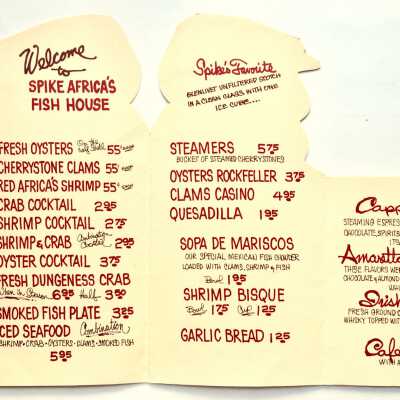 Welcome
to
SPIKE AFRICA'S
FISH HOUSE
FRESH OYSTERS On the half shell 55¢ each
CHERRYSTONE CLAMS 55¢ each
RED AFRICA'S SHRIMP 55¢ each
CRAB COCKTAIL 295
SHRIMP COCKTAIL 275
SHRIMP & CRAB Combination Cocktail 295
OYSTER COCKTAIL 375
FRESH DUNGENESS CRAB
When In Season 695 Half 350
SMOKED FISH PLATE 325
ICED SEAFOOD Combination
SHRIMP · CRAB · OYSTERS · CLAMS · SMOKED FISH
595
Spike's Favorite
GLENLIVET UNFILTERED SCOTCH
IN A CLEAN GLASS WITH ONE
ICE CUBE....
STEAMERS 575
BUCKET OF STEAMED CHERRYSTONES
OYSTERS ROCKFELLER 375
CLAMS CASINO 495
QUESADILLA 195
SOPA DE MARISCOS
OUR SPECIAL MEXICAN FISH CHOWDER
LOADED WITH CLAMS, SHRIMP & FISH
Bowl 195
SHRIMP BISQUE
Bowl 175 Cup 125
GARLIC BREAD 125
Capp
STEAMING ESPRES
CHOCOLATE, SPIRITS
Amarett
THESE FLAVORS WE
CHOCOLATE & ALMOND
WH
Irish
FRESH GROUND C
WHISKY TOPPED WIT
Cafe
WITH A